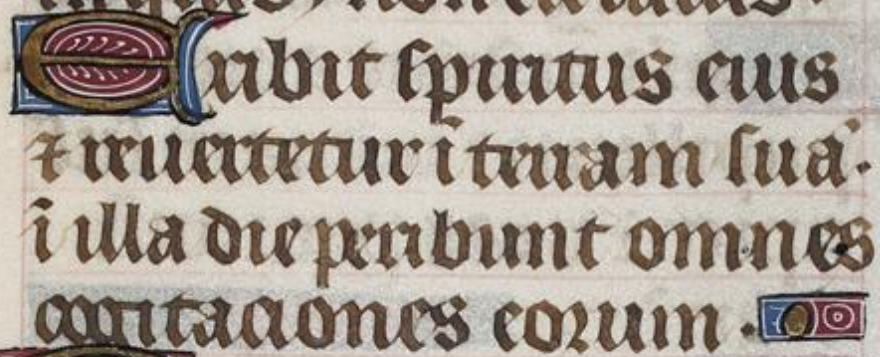 Exibit spiritus eius
⁊ reuertetur ī terram suā.
ī illa die peribunt omnes
cogitaciones eorum.